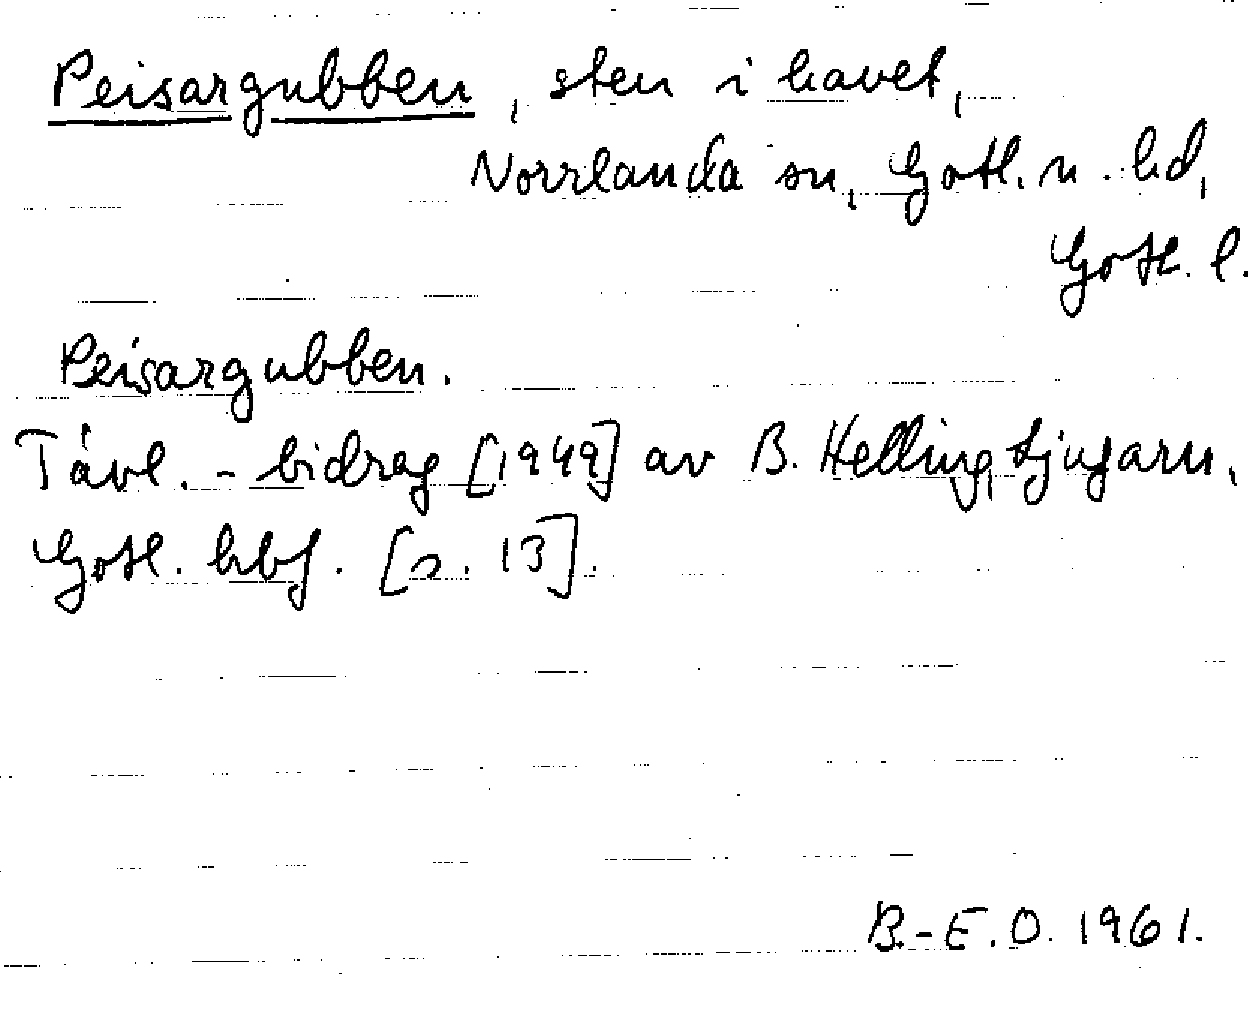 Peisargubben, sten i havet,
Norrlanda sn, Gotl. n. hd,
Gotl. l.
Peisargubben.
Tävl.-bidrag [1949] av B. Helling, Ljugarn,
Gotl. hbf. [s. 13].
B.-E.O. 1961.